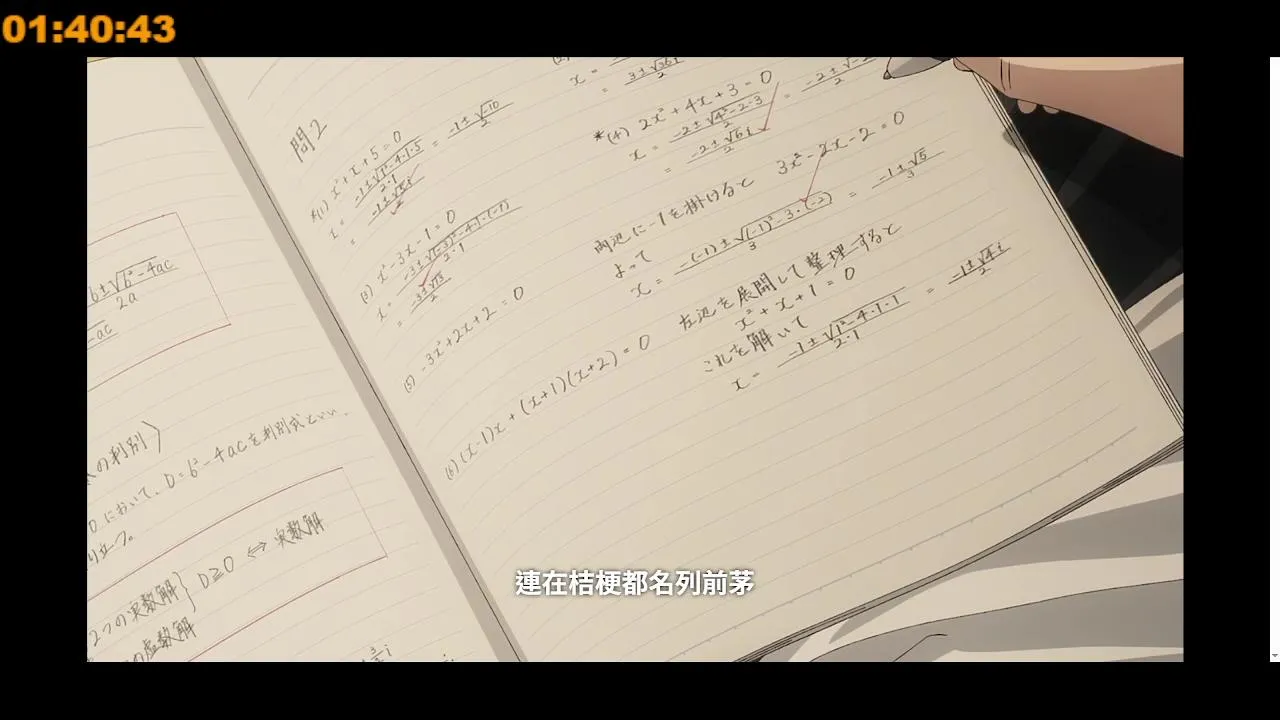 01:40:43
b±√b²-4ac
2a
-ac
の判別〉
0 において、D=b²-4acを判別式といい、
り立つ。
2つの実数解} D≧0 ⇔ 実数解
の虚数解
問2
*(1) x²+x+5=0
x = -1±√1²-4・1・5 / 2・1 = -1±√-10 / 2
(3) x²-3x-1=0
x = -3±√(-3)²-4・1・(-1) / 2・1
= -3±√13 / 2
(5) -3x²+2x+2=0
(6) (x-1)x+(x+1)(x+2)=0
= 3±√36 i / 2
*(4) 2x²+4x+3=0
x = -2±√4²-2・3 / 2
= -2±√6 i / 2
両辺に-1を掛けると 3x²-2x-2=0
よって
x = -(-1)±√(-1)²-3・(-2) / 3 = -1±√5 / 3
左辺を展開して整理すると
x²+x+1=0
これを解いて
x = -1±√1²-4・1・1 / 2・1 = -1±√4 i / 2
連在桔梗都名列前茅